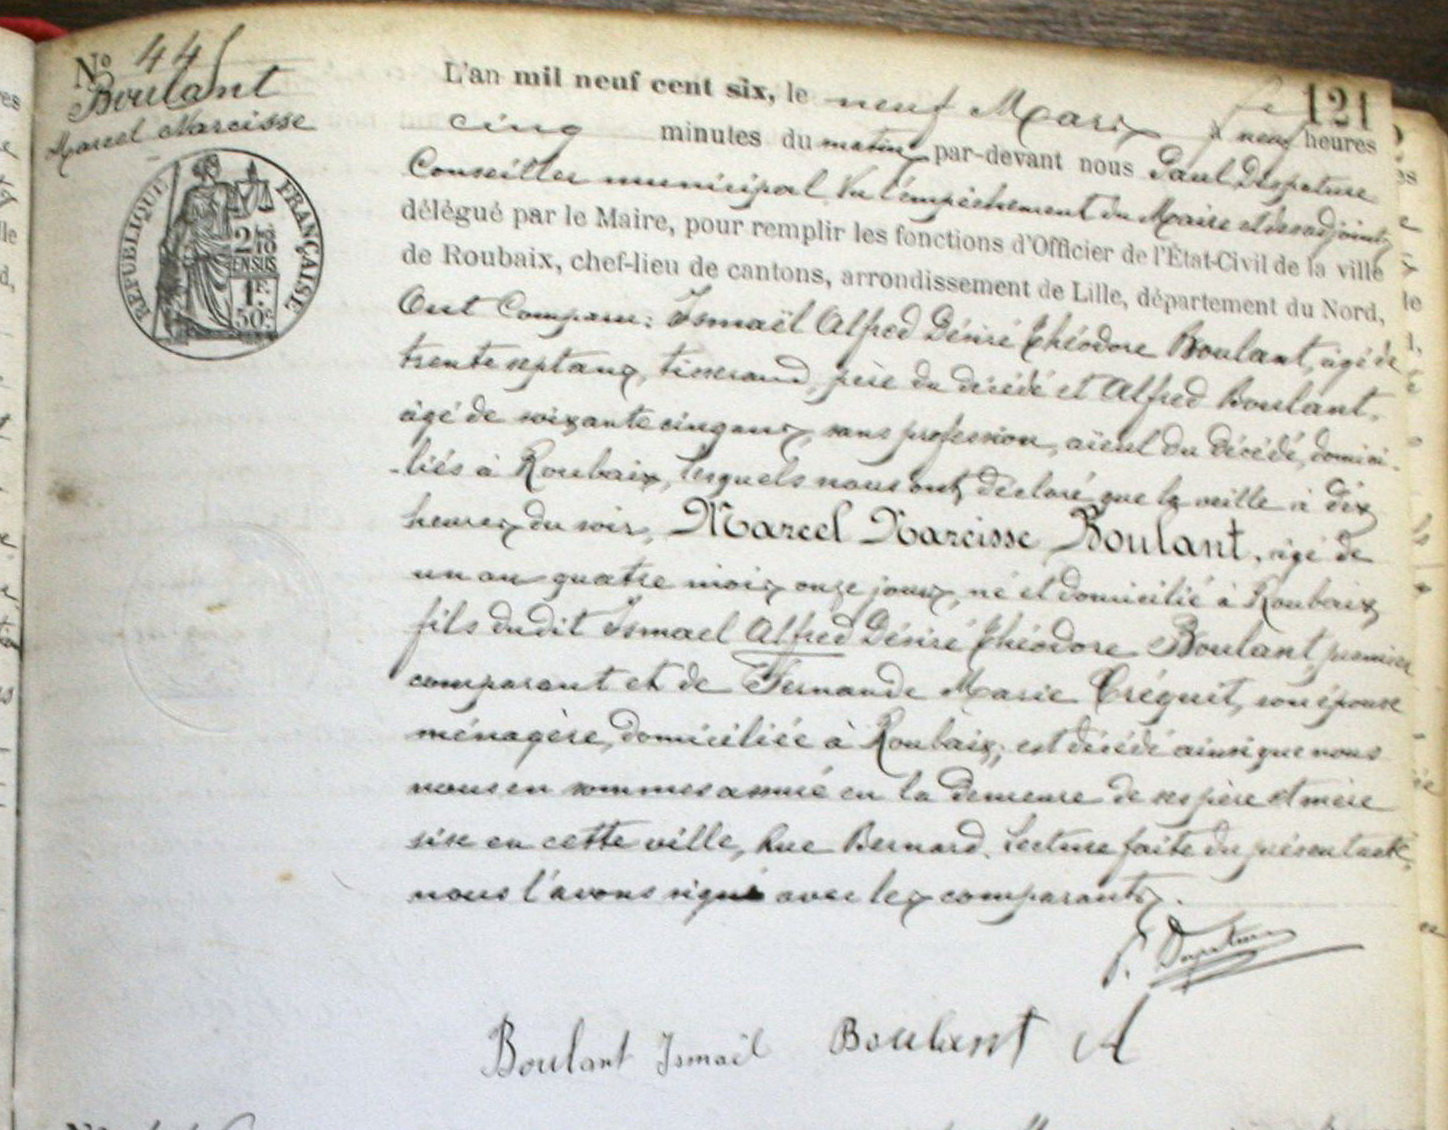 N° 445
Boulant
Marcel Narcisse
121
RÉPUBLIQUE FRANÇAISE
2/10
EN SUS
1F.
50c
L'an mil neuf cent six, le neuf Mars à neuf heures
cinq minutes du matin par-devant nous Paul Despature
Conseiller municipal Vu l'empêchement du Maire et des adjoints
délégué par le Maire, pour remplir les fonctions d'Officier de l'État-Civil de la ville
de Roubaix, chef-lieu de cantons, arrondissement de Lille, département du Nord,
Ont Comparu : Ismaël Alfred Désiré Théodore Boulant, âgé de
trente sept ans, tisserand, père du décédé et Alfred Boulant,
âgé de soixante cinq ans, sans profession, aïeul du décédé, domici-
-liés à Roubaix, lesquels nous ont déclaré que la veille à dix
heures du soir, Marcel Narcisse Boulant, âgé de
un an quatre mois onze jours, né et domicilié à Roubaix,
fils dudit Ismael Alfred Désiré Théodore Boulant, premier
comparant et de Fernande Marie Créquit, son épouse
ménagère, domiciliée à Roubaix, est décédé ainsi que nous
nous en sommes assuré en la demeure de ses père et mère
sise en cette ville, Rue Bernard. Lecture faite du présent acte,
nous l'avons signé avec les comparants.
P. Despature
Boulant Ismaël Boulant A